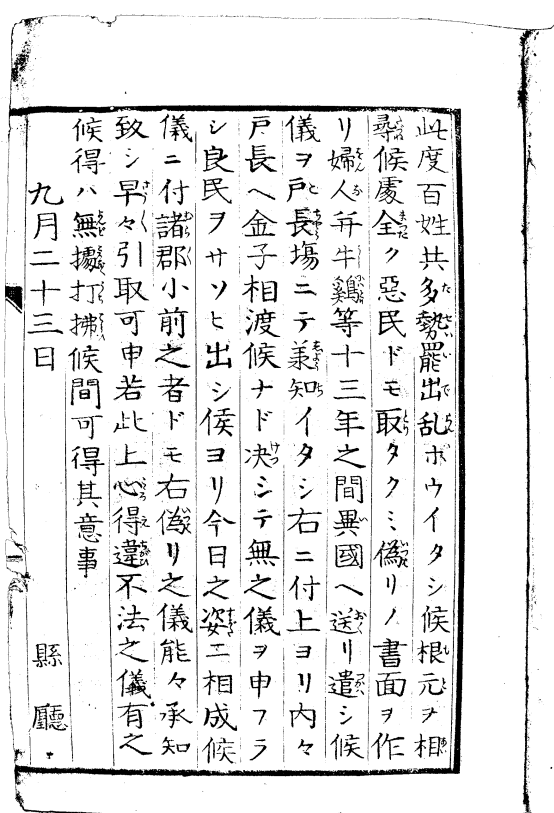 此度百姓共多勢罷出乱ボウイタシ候根元ヲ相
尋候處全ク惡民ドモ取タクミ偽リノ書面ヲ作
リ婦人并牛鷄等十三年之間異國ヘ送リ遣シ候
儀ヲ戸長塲ニテ羕知イタシ右ニ付上ヨリ内々
戸長ヘ金子相渡候ナド决シテ無之儀ヲ申フラ
シ良民ヲサソヒ出シ候ヨリ今日之姿ニ相成候
儀ニ付諸郡小前之者ドモ右偽リ之儀能々承知
致シ早々引取可申若此上心得違不法之儀有之
候得ハ無據打拂候間可得其意事
九月二十三日
縣廳